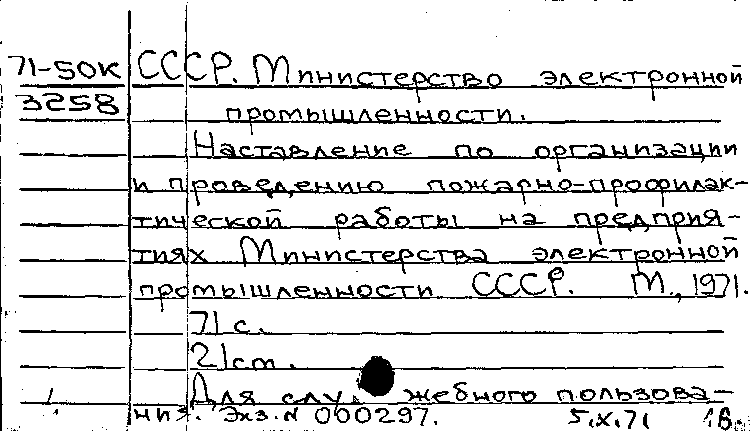 71-50К СССР. Министерство электронной
3258 промышленности.
Наставление по организации
и проведению пожарно-профилак-
тической работы на предприя-
тиях Министерства электронной
промышленности СССР. М., 1971.
71 с.
21 см.
Для служебного пользова-
ния. Экз. N 000297. 5.X.71 1в.